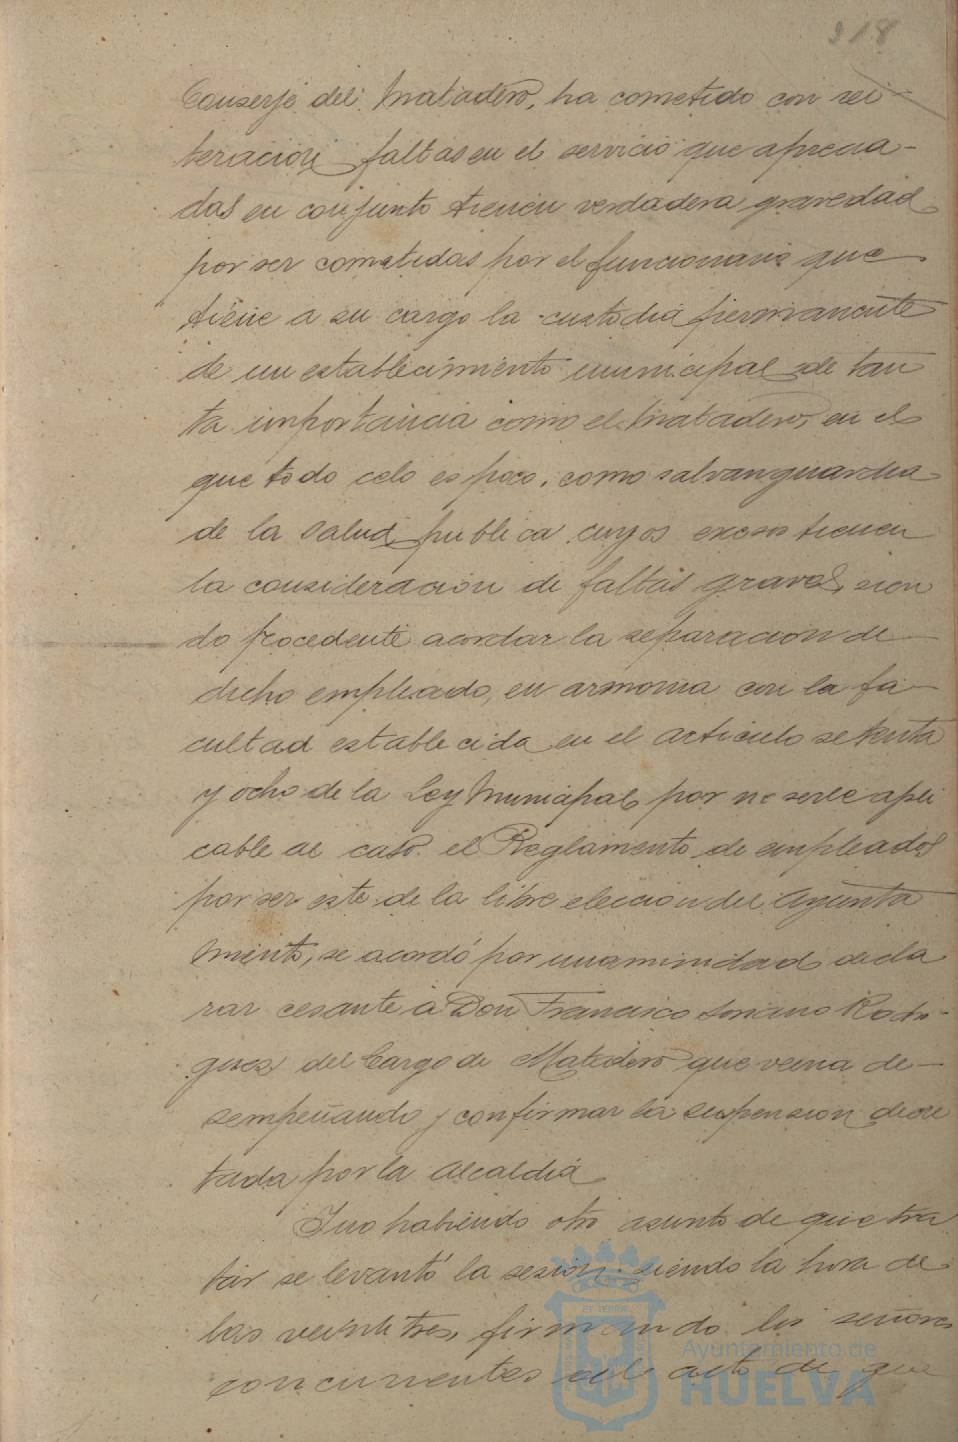 318
Conserje del Matadero, ha cometido con rei-
teración faltas en el servicio que aprecia-
das en conjunto tienen verdadera gravedad
por ser cometidas por el funcionario que
tiene a su cargo la custodia permanente
de un establecimiento municipal de tan
ta importancia como el Matadero, en el
que todo celo es poco, como salvanguardia
de la salud publica cuyos excesos tienen
la consideracion de faltas graves, sien
do procedente acordar la separacion de
dicho empleado, en armonia con la fa-
cultad establecida en el articulo setenta
y ocho de la Ley Municipal por no serle apli
cable al caso el Reglamento de empleados
por ser este de la libre eleccion del Ayunta
miento, se acordó por unanimidad decla
rar cesante a Don Francisco Soriano Rodri-
guez del Cargo de Matadero que venia de-
sempeñando y confirmar la suspension decre
tada por la Alcaldia
Y no habiendo otro asunto de que tra
tar se levantó la sesion siendo la hora de
las veintitres, firmando los señores
concurrentes al acto de que
Ayuntamiento de
HUELVA